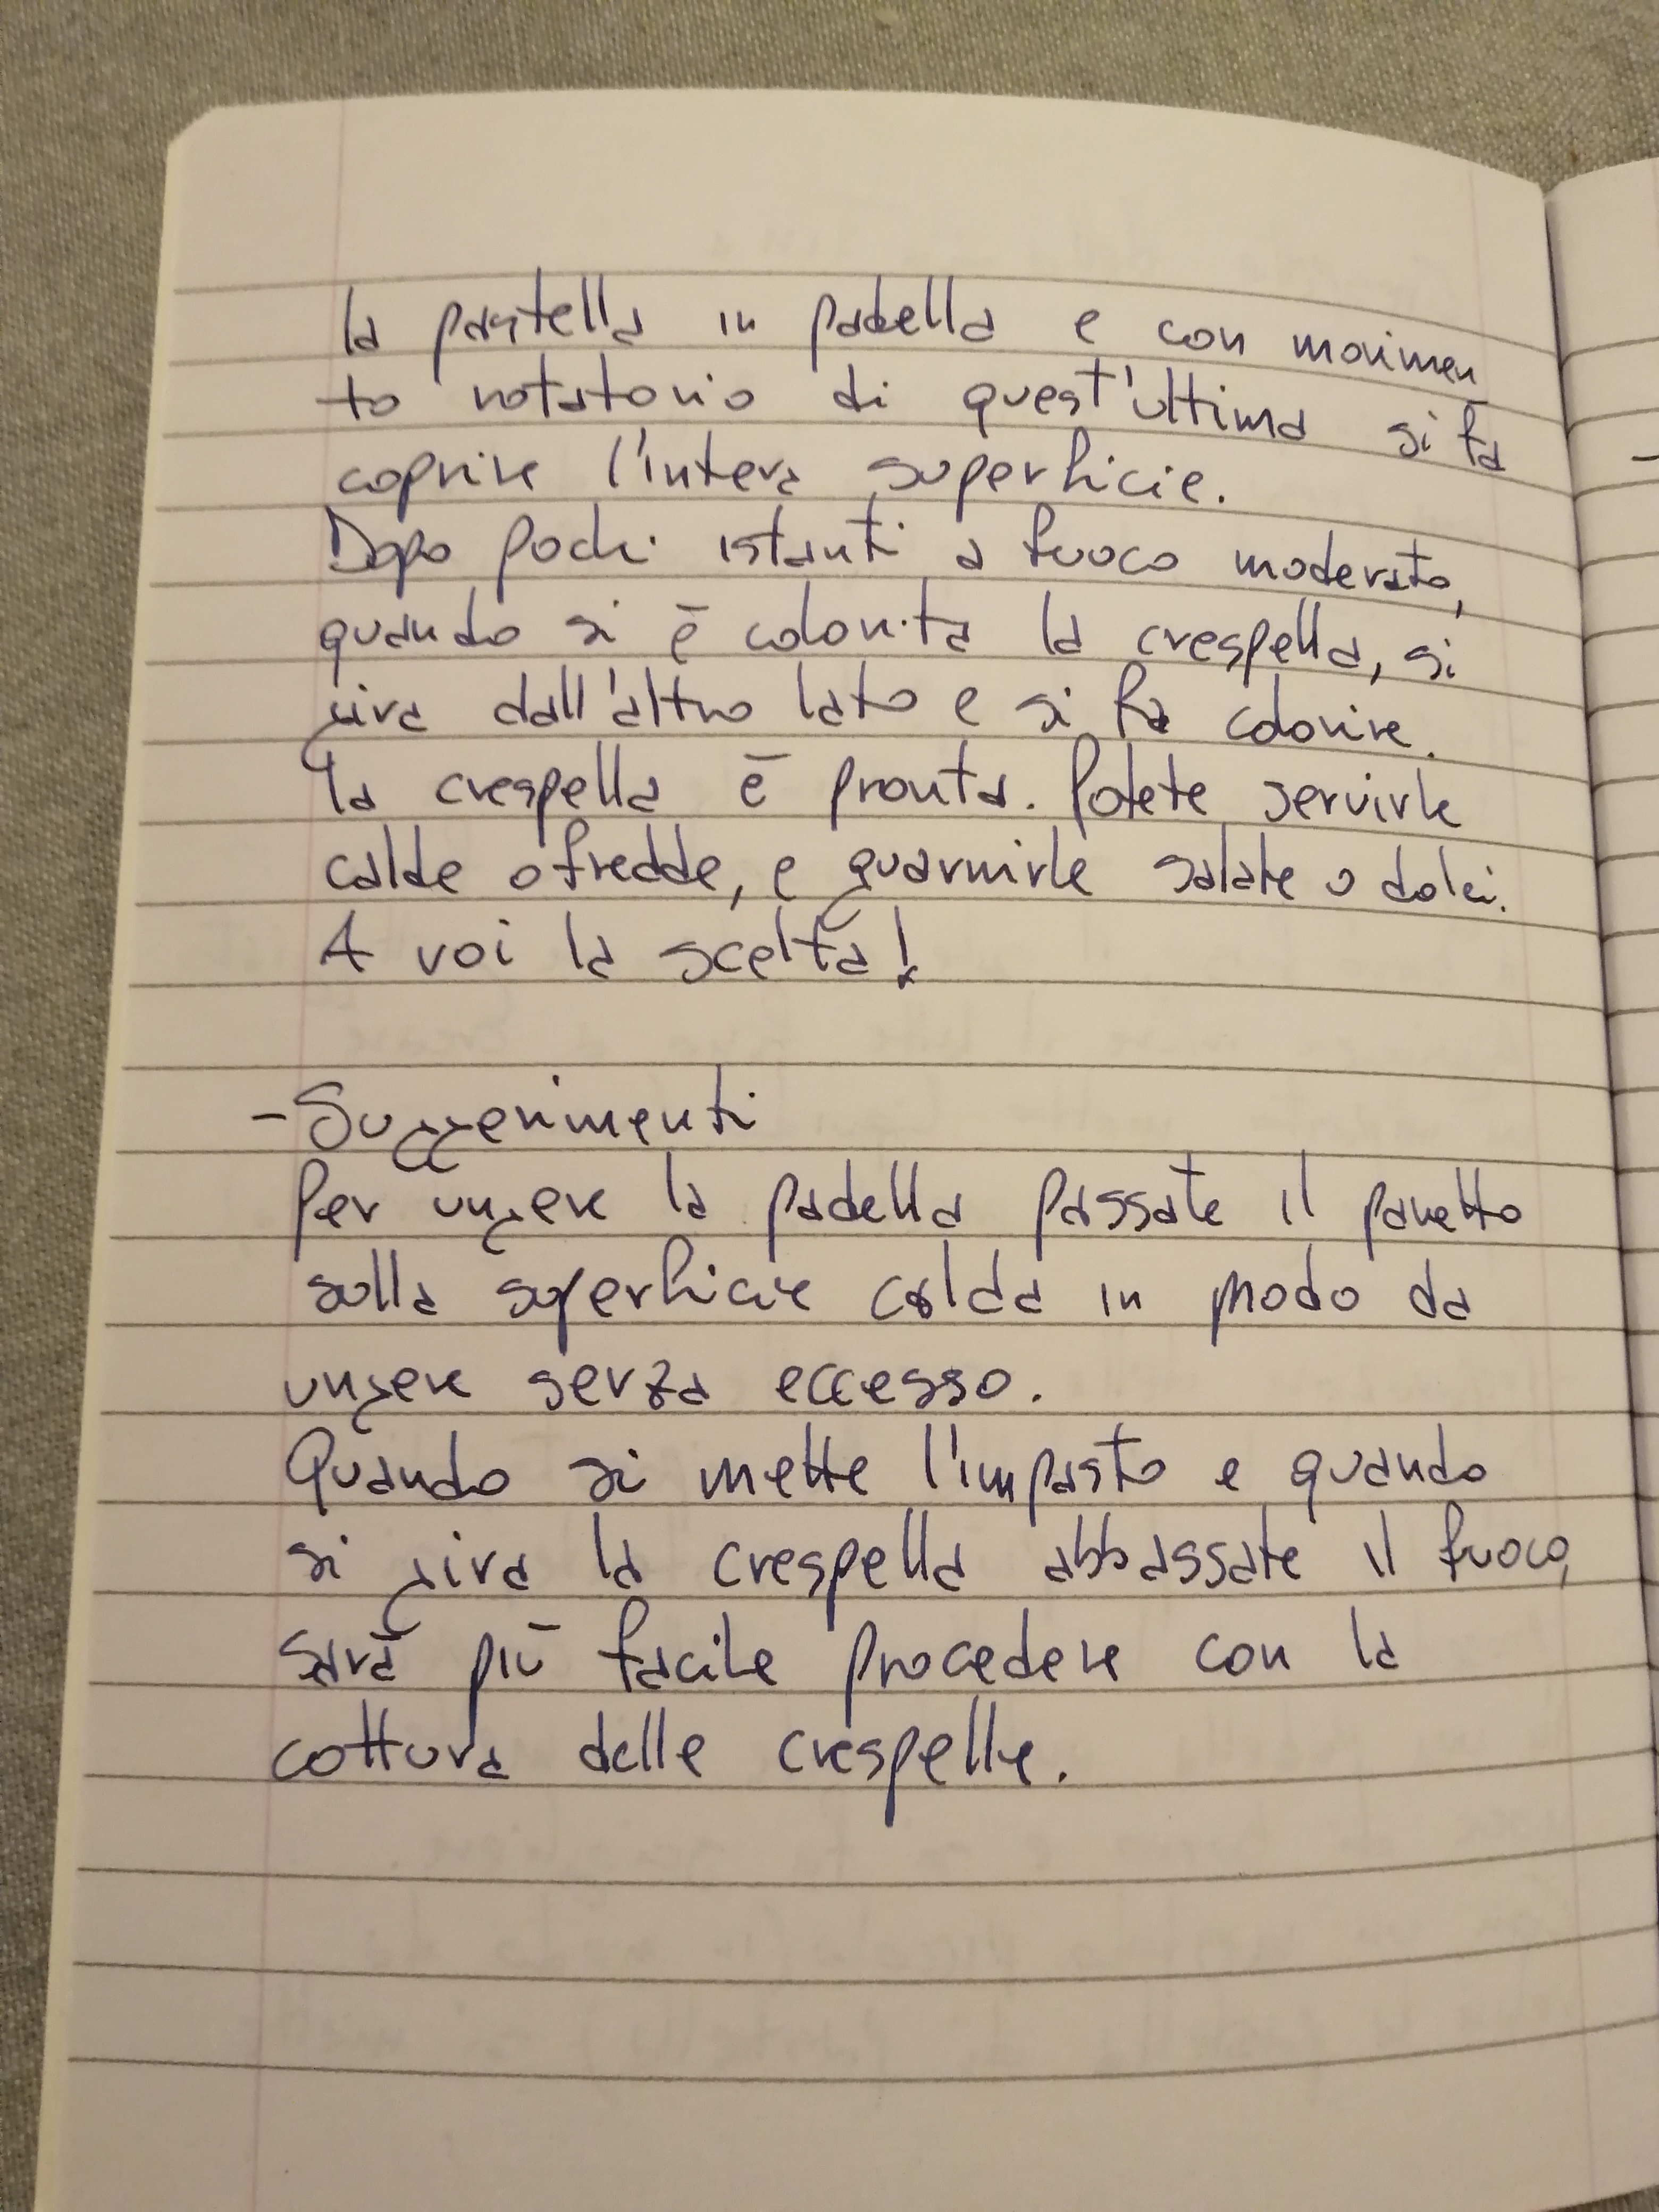 la pastella in padella e con movimen
to rotatorio di quest'ultima si fa
coprire l'intera superficie.
Dopo pochi istanti a fuoco moderato,
quando si è colorita la crespella, si
gira dall'altro lato e si fa colorire.
la crespella è pronta. Potete servirle
calde o fredde, e guarnirle salate o dolci.
A voi la scelta!
- Suggerimenti
Per ungere la padella passate il panetto
sulla superficie calda in modo da
ungere senza eccesso.
Quando si mette l'impasto e quando
si gira la crespella abbassate il fuoco,
sarà più facile procedere con la
cottura delle crespelle.